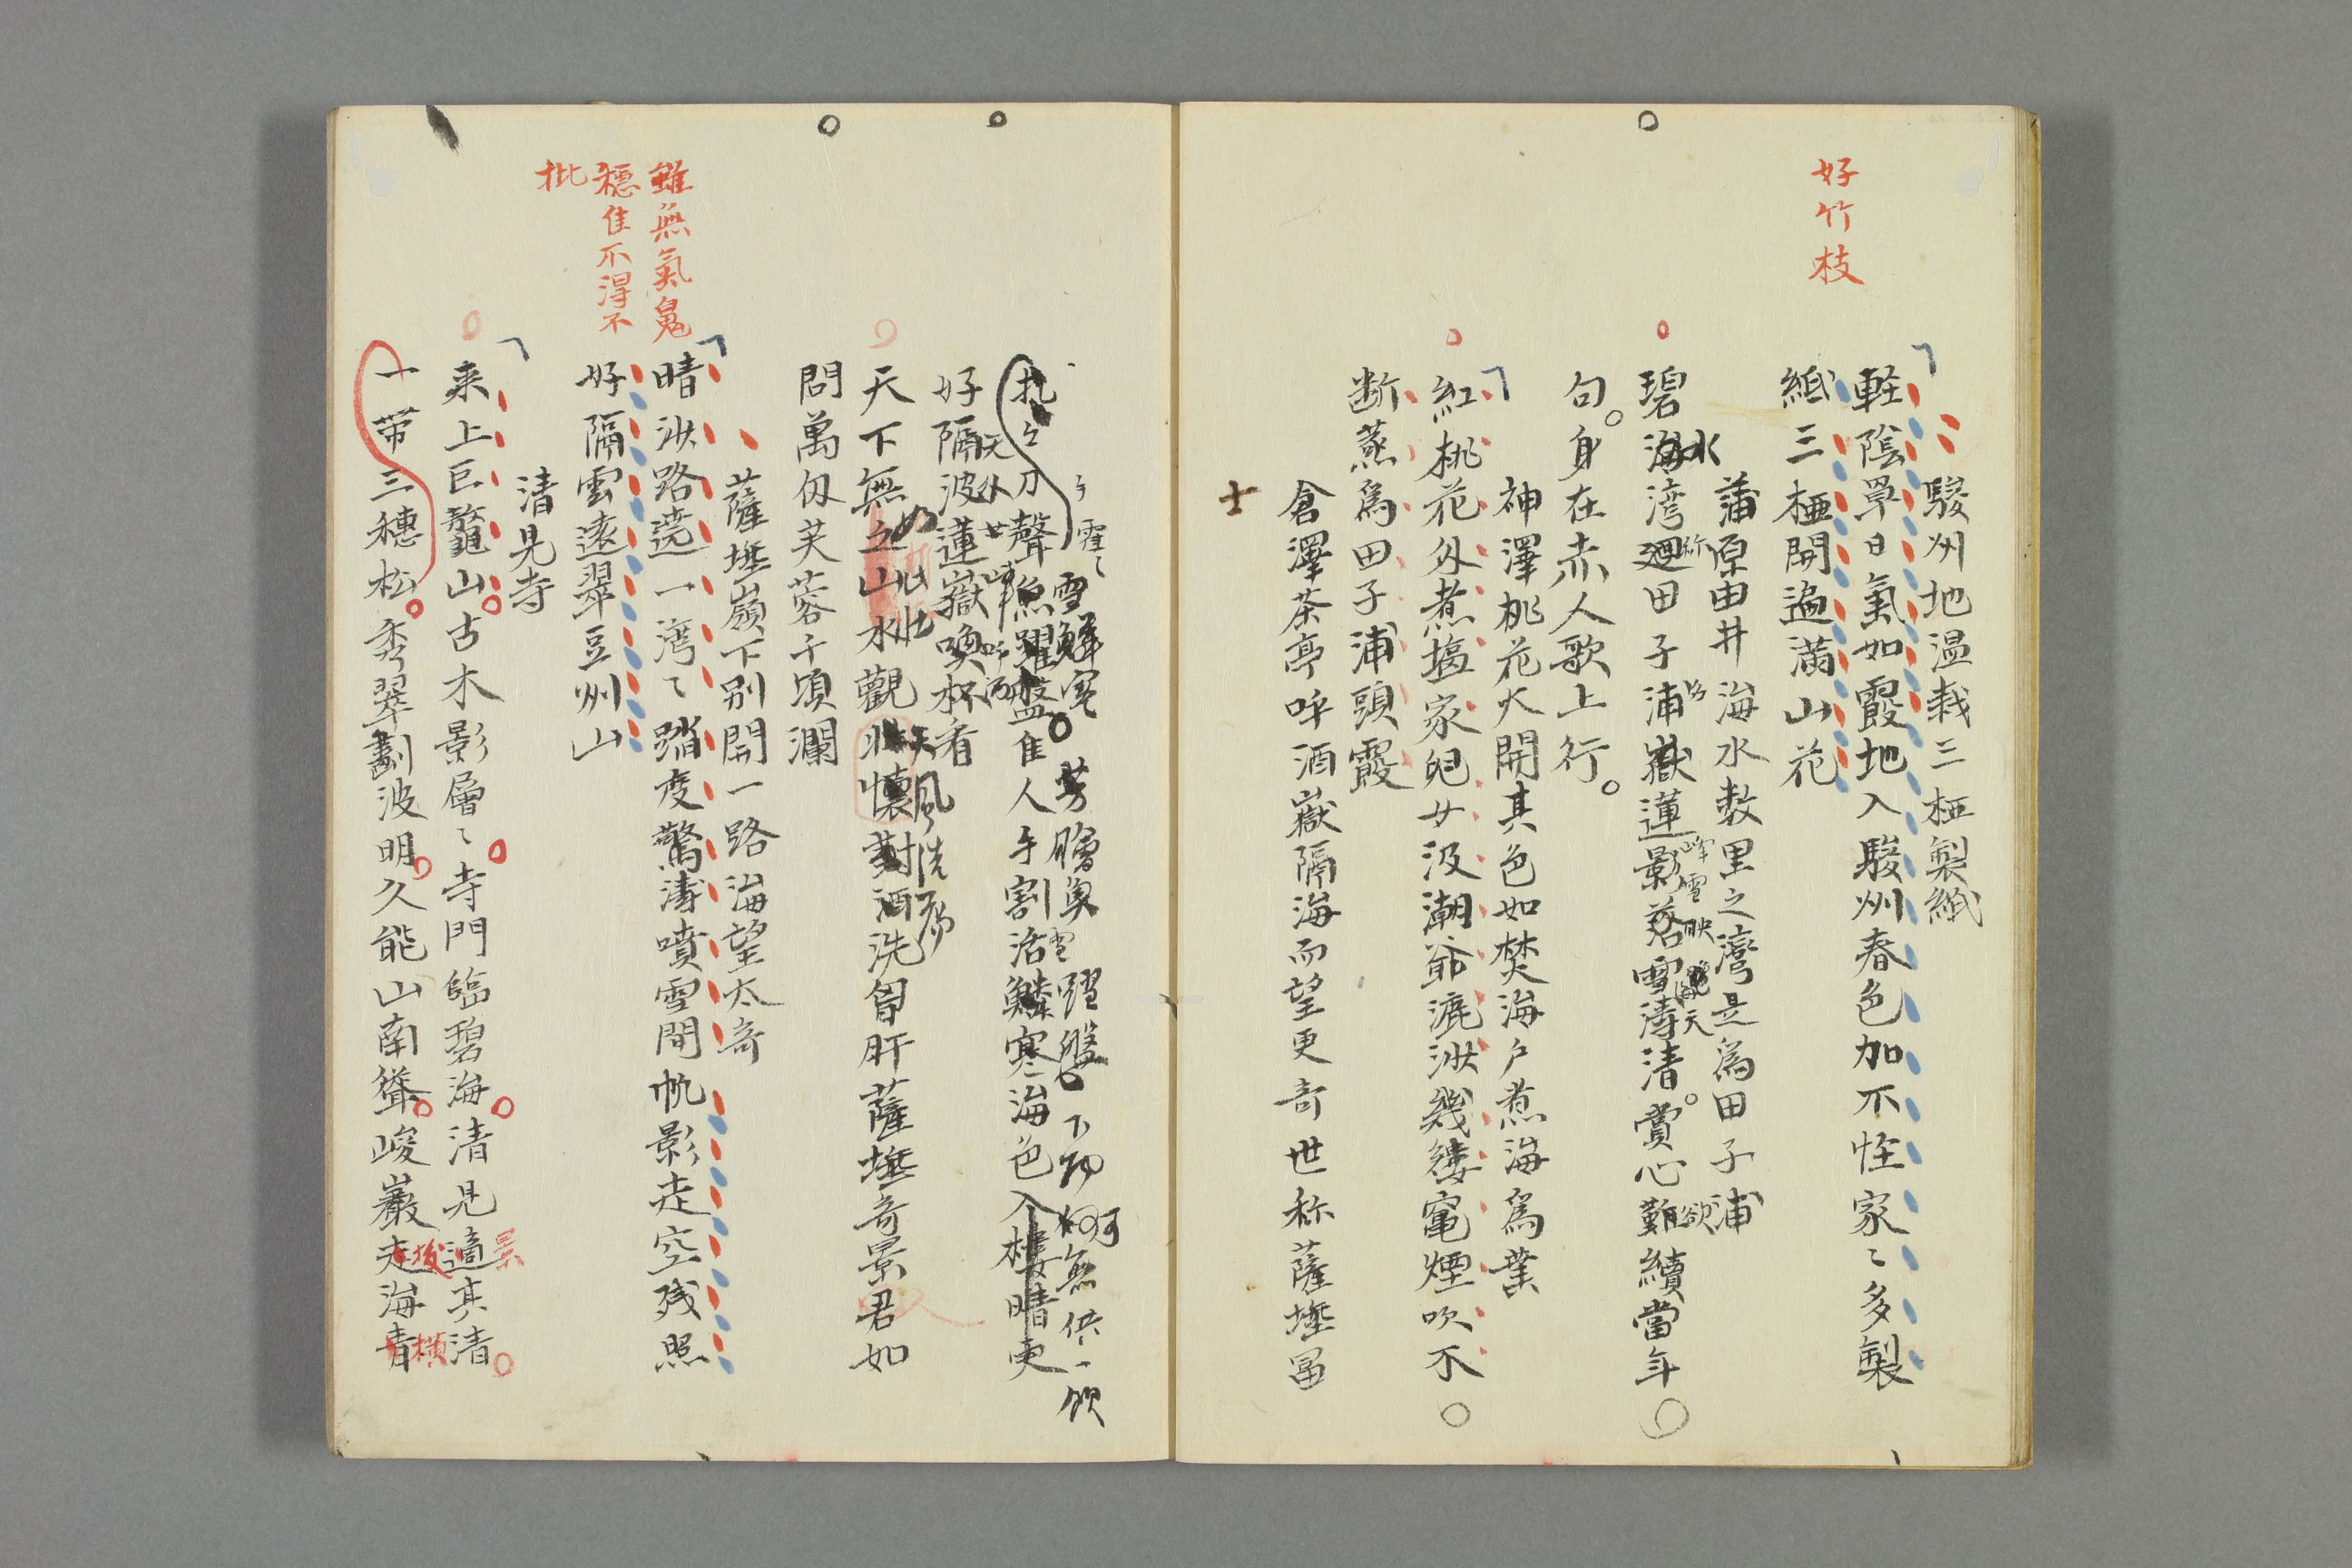 好竹枝
駿州地温栽三椏製紙
軽陰罩日氣如霞地入駿州春色加不怪家〻多製
紙三椏開遍滿山花
蒲原由井海水数里之灣是為田子浦
碧海湾廻田子浦嶽蓮影落雪濤清賞心難續當年
水
峰雪映
天
欲
句身在赤人歌上行
神澤桃花大開其色如焚海戶煮海為業
紅桃花外煮塩家兒女汲潮爺漉沙幾縷竃煙吹不
断蒸為田子浦頭霞
倉澤茶亭呼酒嶽隔海而望更奇世称薩埵冨
士
雪鱗寒
芳膾魚躍盤下物何無供一飲
刀聲魚躍盤隹人手割活鱗寒海色入樓晴更
好隔波蓮嶽喚杯看
天下無之山水觀壯懷對酒洗胷肝薩埵奇景君如
天風洗
問萬仭芙蓉千頃瀾
薩埵嶺下別開一路海望太奇
雖無氣魄
穏隹不得不
批
晴沙路遶一湾〻踏度驚濤噴雪間帆影走空残照
好隔雲遠翠豆州山
清見寺
来上巨鼇山古木影層〻寺門臨碧海清見適其清
景
一帯三穗松秀翠劃波明久能山南聳峻巖走海青
拔
横